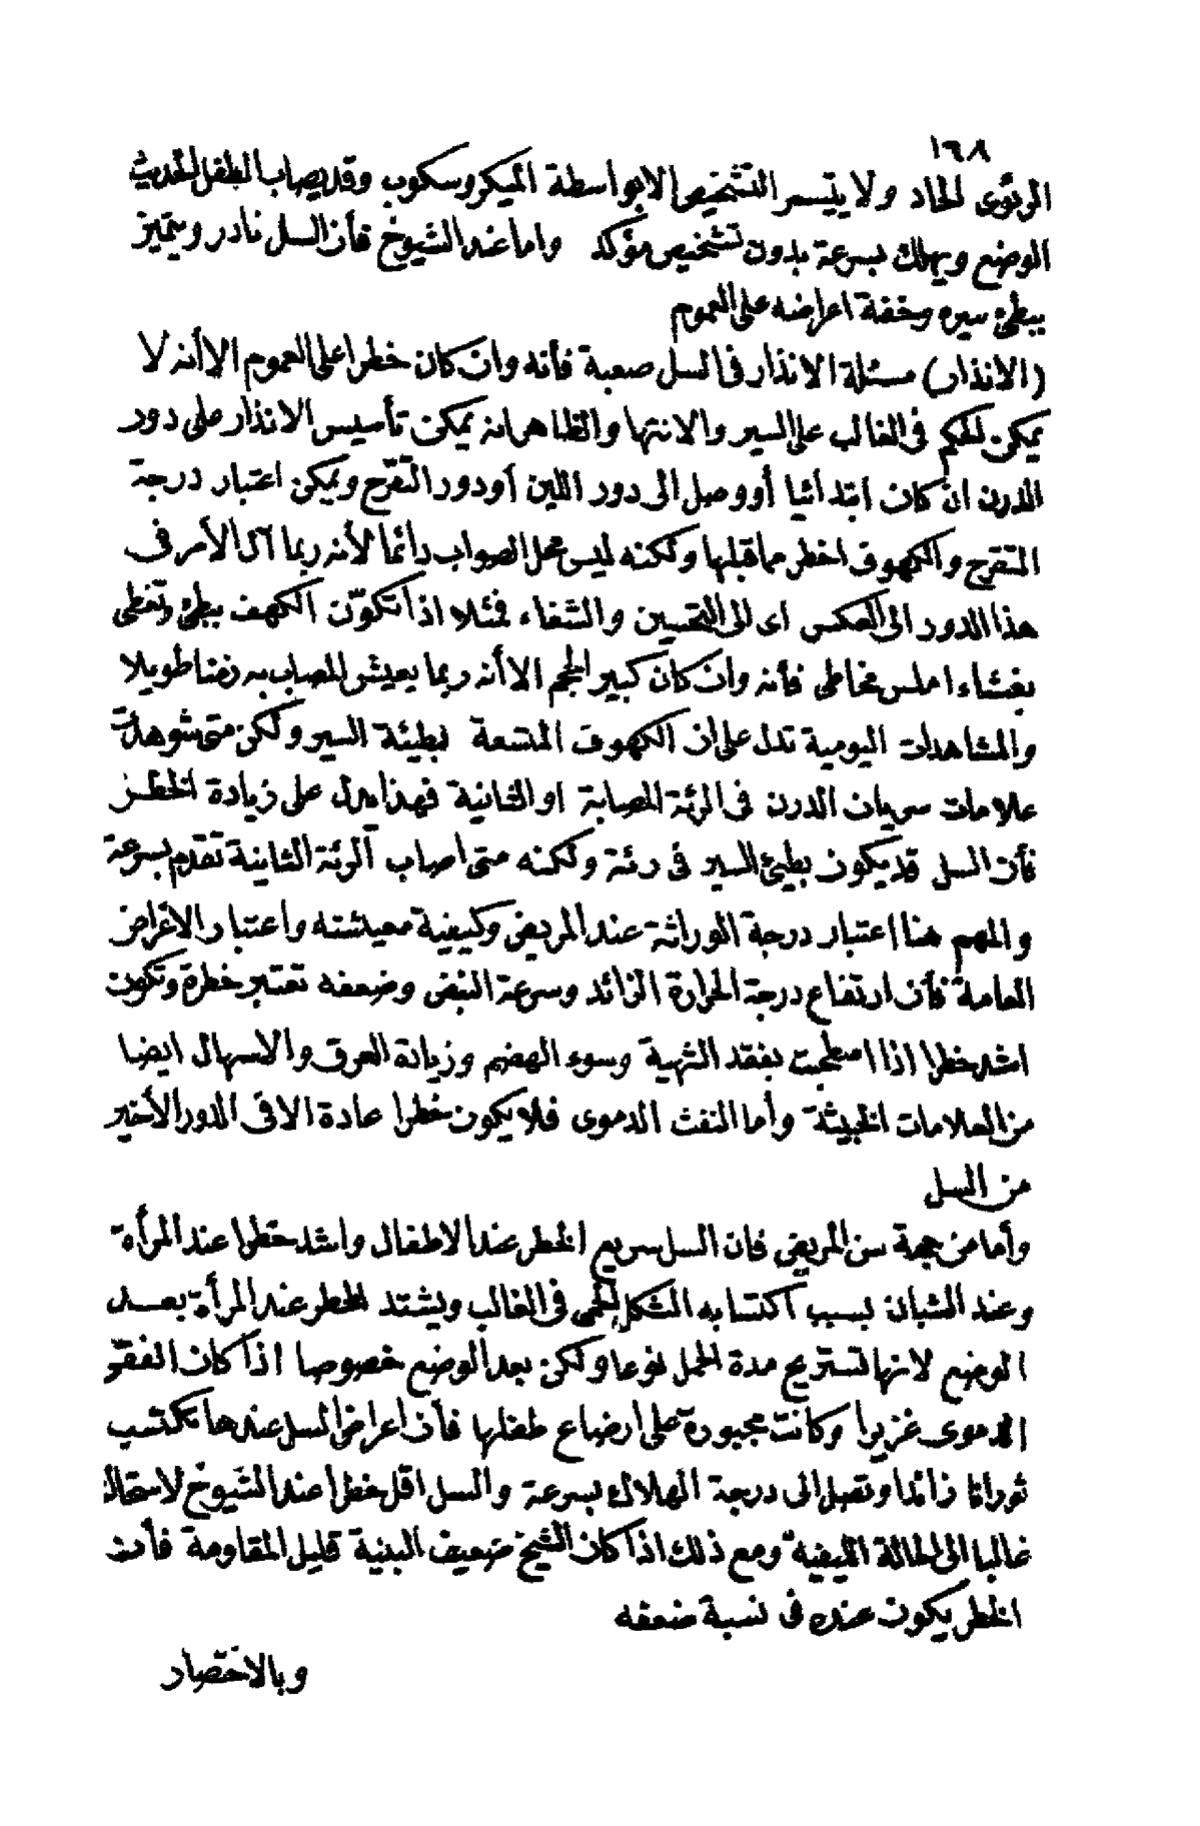 ١٦٨
الرئوى الحاد ولا يتيسر التشخيص الا بواسطة الميكروسكوب وقد يصاب الطفل الحديث
الوضع ويهلك بسرعة بدون تشخيص مؤكد واما عند الشيوخ فأن السل نادر ويتميز
ببطئ سيره وخفة اعراضه على العموم
(الانذار) مسئلة الانذار فى السل صعبة فأنه وان كان خطرا على العموم الا أنه لا
يمكن الحكم فى الغالب على السير والانتها والظاهر انه يمكن تأسيس الانذار على دور
الدرن ان كان ابتدائيا أو وصل الى دور اللين أو دور التقرّح ويمكن اعتبار درجة
التقرح والكهوف اخطر مما قبلها ولكنه ليس محل الصواب دائما لأنه ربما آل الأمر فى
هذا الدور الى العكس اى الى التحسين والشفاء فمثلا اذا تكوّن الكهف ببطئ وتغطى
بغشاء املس مخاطى فأنه وان كان كبير الحجم الا أنه ربما يعيش المصاب به زمنا طويلا
والمشاهدات اليومية تدل على ان الكهوف المتسعة بطيئة السير ولكن متى شوهدت
علامات سريان الدرن فى الرئة المصابة او الثانية فهذا يدل على زيادة الخطر
فأن السل قد يكون بطيئ السير فى رئة ولكنه متى اصاب الرئة الثانية تقدم بسرعة
والمهم هنا اعتبار درجة الوراثة عند المريض وكيفية معيشته واعتبار الاعراض
العامة فأن ارتفاع درجة الحرارة الزائد وسرعة النبض وضعفه تعتبر خطرة وتكون
اشد خطرا اذا اصطحبت بفقد الشهية وسوء الهضم وزيادة العرق والاسهال ايضا
من العلامات الخبيثة وأما النفث الدموى فلا يكون خطرا عادة الا فى الدور الأخير
من السل
وأما من جهة سن المريض فان السل سريع الخطر عند الاطفال واشد خطرا عند المرأة
وعند الشبان بسبب اكتسابه الشكل الحمى فى الغالب ويشتد الخطر عند المرأة بعد
الوضع لانها تستريح مدة الحمل نوعا ولكن بعد الوضع خصوصا اذا كان الفقر
الدموى غزيرا وكانت مجبورة على ارضاع طفلها فأن اعراض السل عندها تكتسب
ثورانا زائدا وتصل الى درجة الهلاك بسرعة والسل اقل خطرا عند الشيوخ لاستحالته
غالبا الى الحالة الليفية ومع ذلك اذا كان الشيخ ضعيف البنية قليل المقاومة فأن
الخطر يكون عنده فى نسبة ضعفه
وبالاختصار